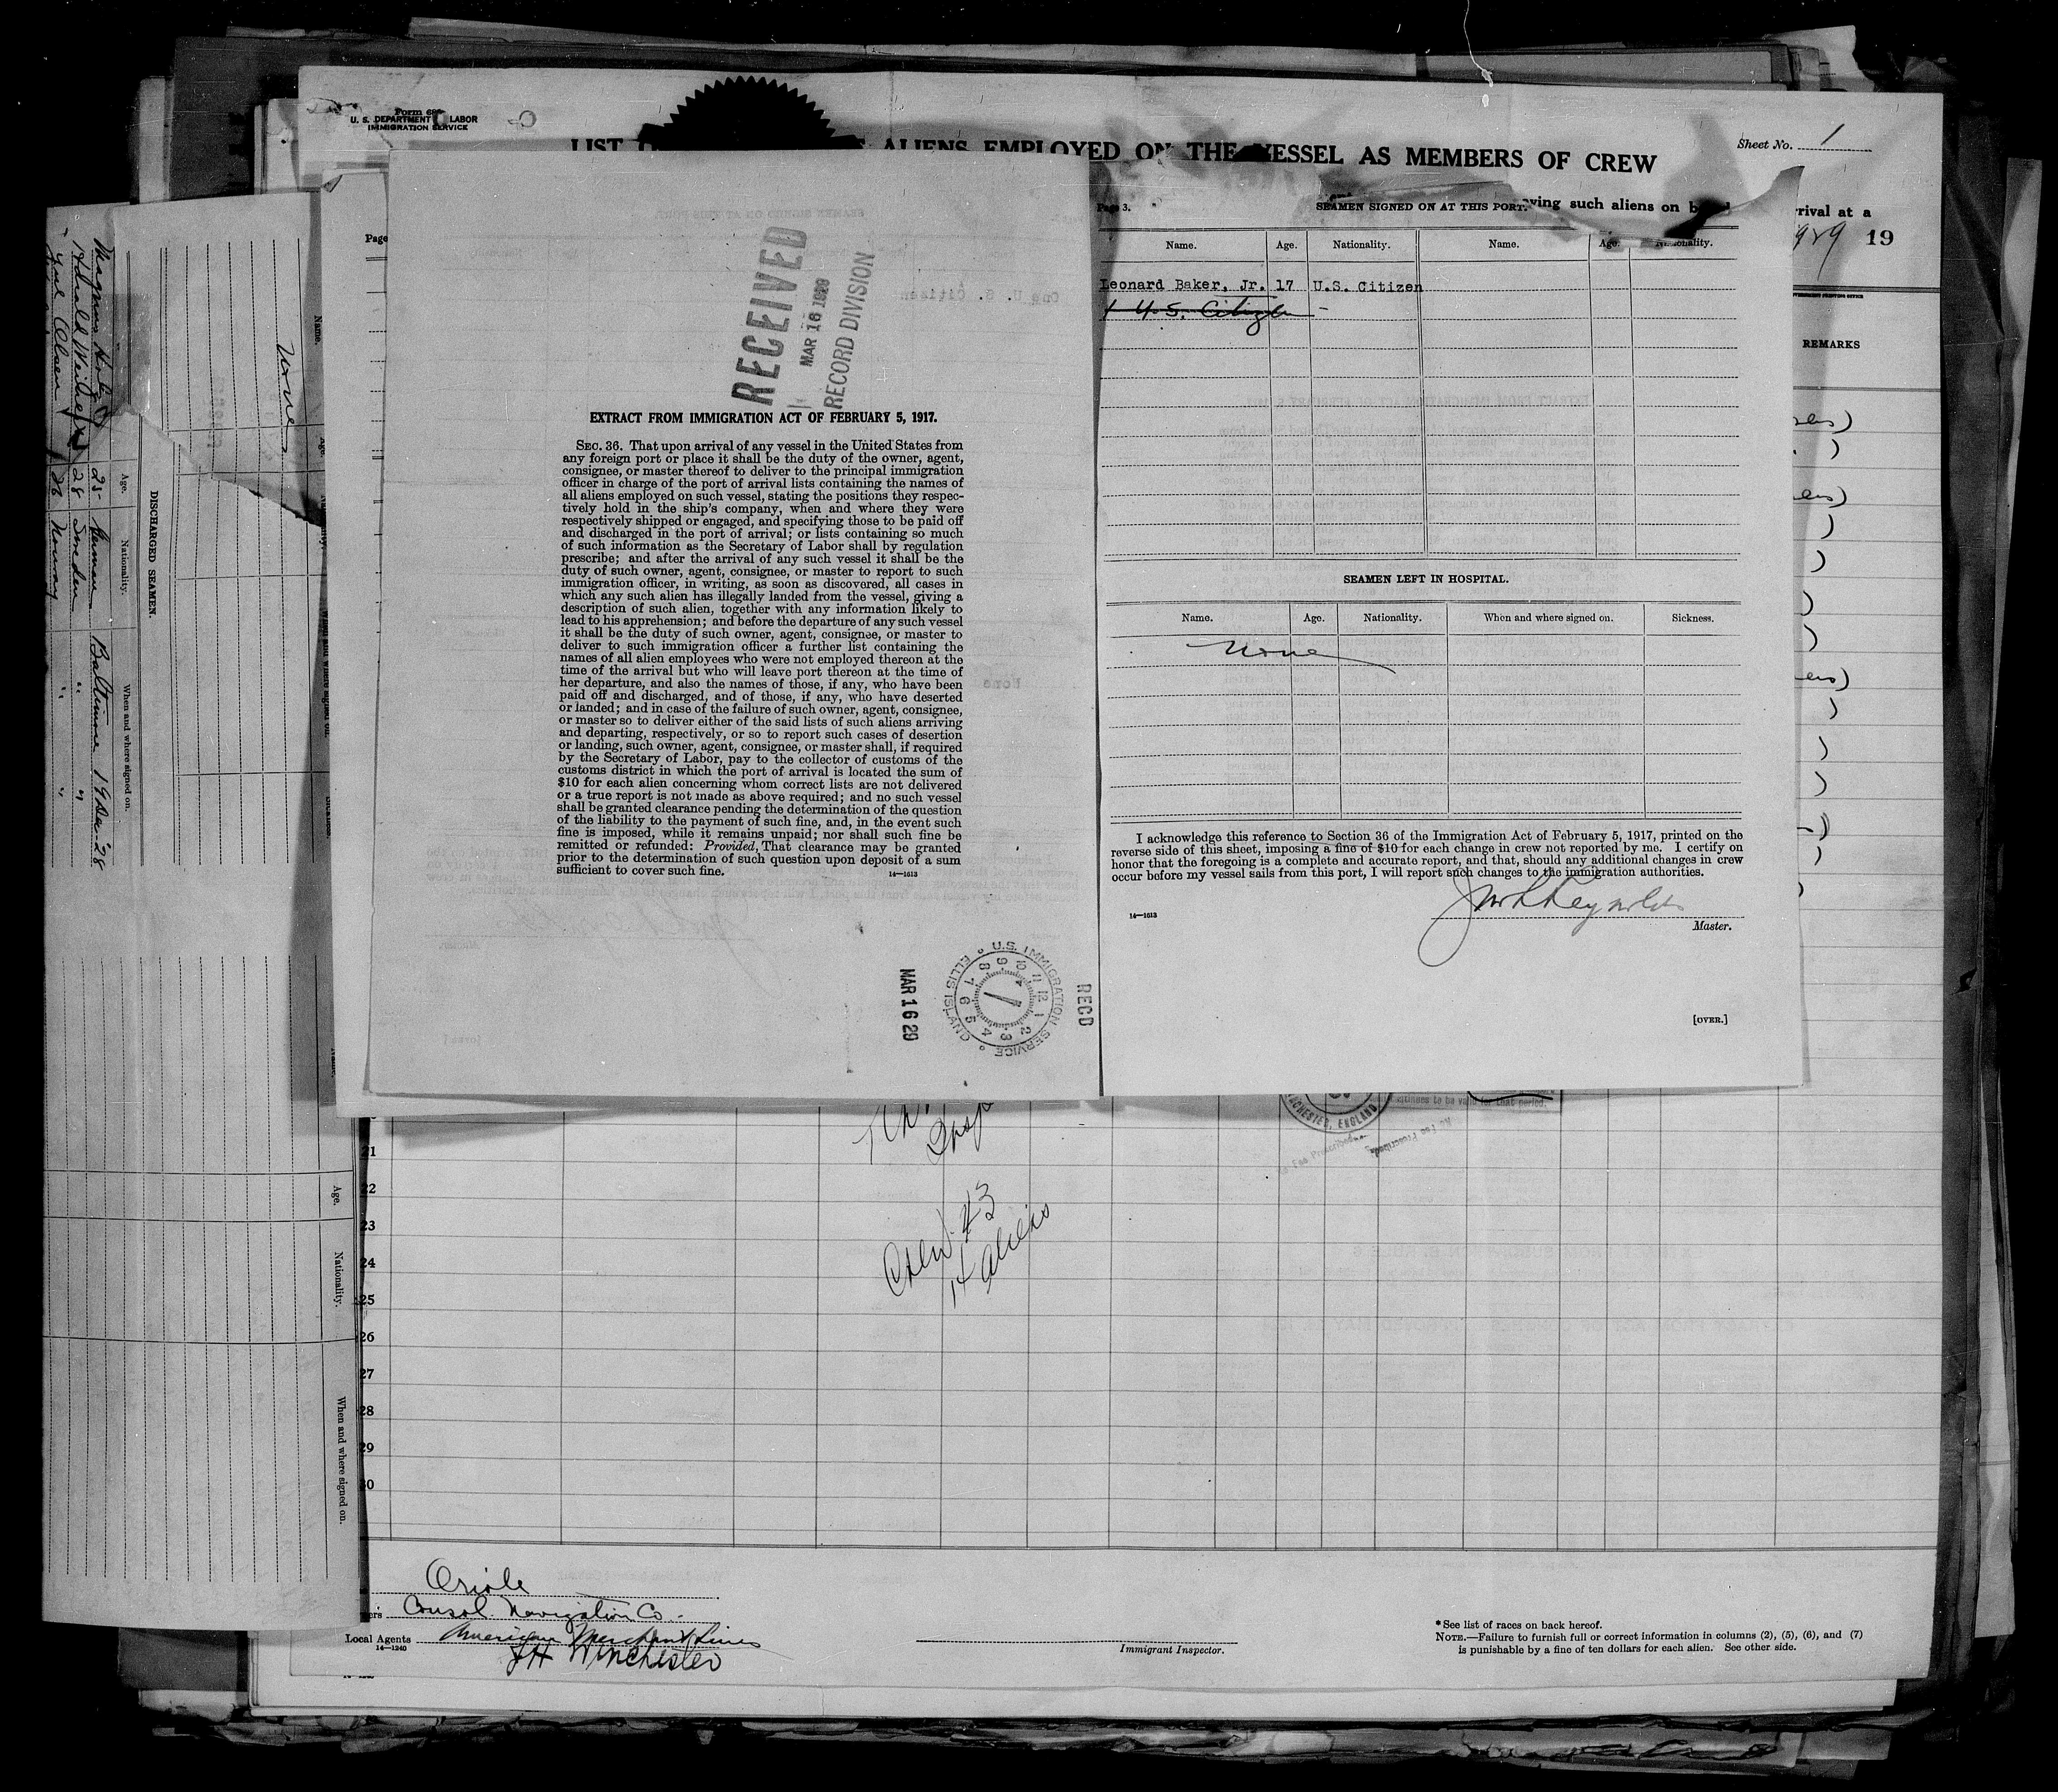 Form 68
U. S. DEPARTMENT LABOR
IMMIGRATION SERVICE
LIST ALIENS EMPLOYED ON THE VESSEL AS MEMBERS OF CREW
Sheet No. 1
ving such aliens on
rrival at a
19
REMARKS
Page
RECEIVED
MAR 16 1929
RECORD DIVISION
EXTRACT FROM IMMIGRATION ACT OF FEBRUARY 5, 1917.
SEC. 36. That upon arrival of any vessel in the United States from
any foreign port or place it shall be the duty of the owner, agent,
consignee, or master thereof to deliver to the principal immigration
officer in charge of the port of arrival lists containing the names of
all aliens employed on such vessel, stating the positions they respec-
tively hold in the ship's company, when and where they were
respectively shipped or engaged, and specifying those to be paid off
and discharged in the port of arrival; or lists containing so much
of such information as the Secretary of Labor shall by regulation
prescribe; and after the arrival of any such vessel it shall be the
duty of such owner, agent, consignee, or master to report to such
immigration officer, in writing, as soon as discovered, all cases in
which any such alien has illegally landed from the vessel, giving a
description of such alien, together with any information likely to
lead to his apprehension; and before the departure of any such vessel
it shall be the duty of such owner, agent, consignee, or master to
deliver to such immigration officer a further list containing the
names of all alien employees who were not employed thereon at the
time of the arrival but who will leave port thereon at the time of
her departure, and also the names of those, if any, who have been
paid off and discharged, and of those, if any, who have deserted
or landed; and in case of the failure of such owner, agent, consignee,
or master so to deliver either of the said lists of such aliens arriving
and departing, respectively, or so to report such cases of desertion
or landing, such owner, agent, consignee, or master shall, if required
by the Secretary of Labor, pay to the collector of customs of the
customs district in which the port of arrival is located the sum of
$10 for each alien concerning whom correct lists are not delivered
or a true report is not made as above required; and no such vessel
shall be granted clearance pending the determination of the question
of the liability to the payment of such fine, and, in the event such
fine is imposed, while it remains unpaid; nor shall such fine be
remitted or refunded: Provided, That clearance may be granted
prior to the determination of such question upon deposit of a sum
sufficient to cover such fine.
14—1613
MAR 16 29
U.S. IMMIGRATION SERVICE ELLIS ISLAND
1 2 3 4 5 6 7 8 9 10 11 12
RECD
Page 3.
SEAMEN SIGNED ON AT THIS PORT.
Name. Age. Nationality. Name. Age. Nationality.
Leonard Baker, Jr. 17 U.S. Citizen
1 U.S. Citizen
SEAMEN LEFT IN HOSPITAL.
Name. Age. Nationality. When and where signed on. Sickness.
None
I acknowledge this reference to Section 36 of the Immigration Act of February 5, 1917, printed on the
reverse side of this sheet, imposing a fine of $10 for each change in crew not reported by me. I certify on
honor that the foregoing is a complete and accurate report, and that, should any additional changes in crew
occur before my vessel sails from this port, I will report such changes to the immigration authorities.
Reynolds
Master.
14—1613
[OVER.]
Name. Age.
None
DISCHARGED SEAMEN.
Age. Nationality. When and where signed on.
Magnus 25 German Baltimore 19 Dec '28
28 Sweden " "
Olsen 26 Norway " "
Age. Nationality. When and where signed on.
CHESTER, ENGLAND
continues to be valid for that period.
No Fee Prescribed
Insp
Crew 43
14 aliens
21
22
23
24
25
26
27
28
29
30
Oriole
Consol. Navigation Co.
Local Agents American Merchant Lines
JH Winchester
14—1240
Immigrant Inspector.
* See list of races on back hereof.
NOTE.—Failure to furnish full or correct information in columns (2), (5), (6), and (7)
is punishable by a fine of ten dollars for each alien. See other side.